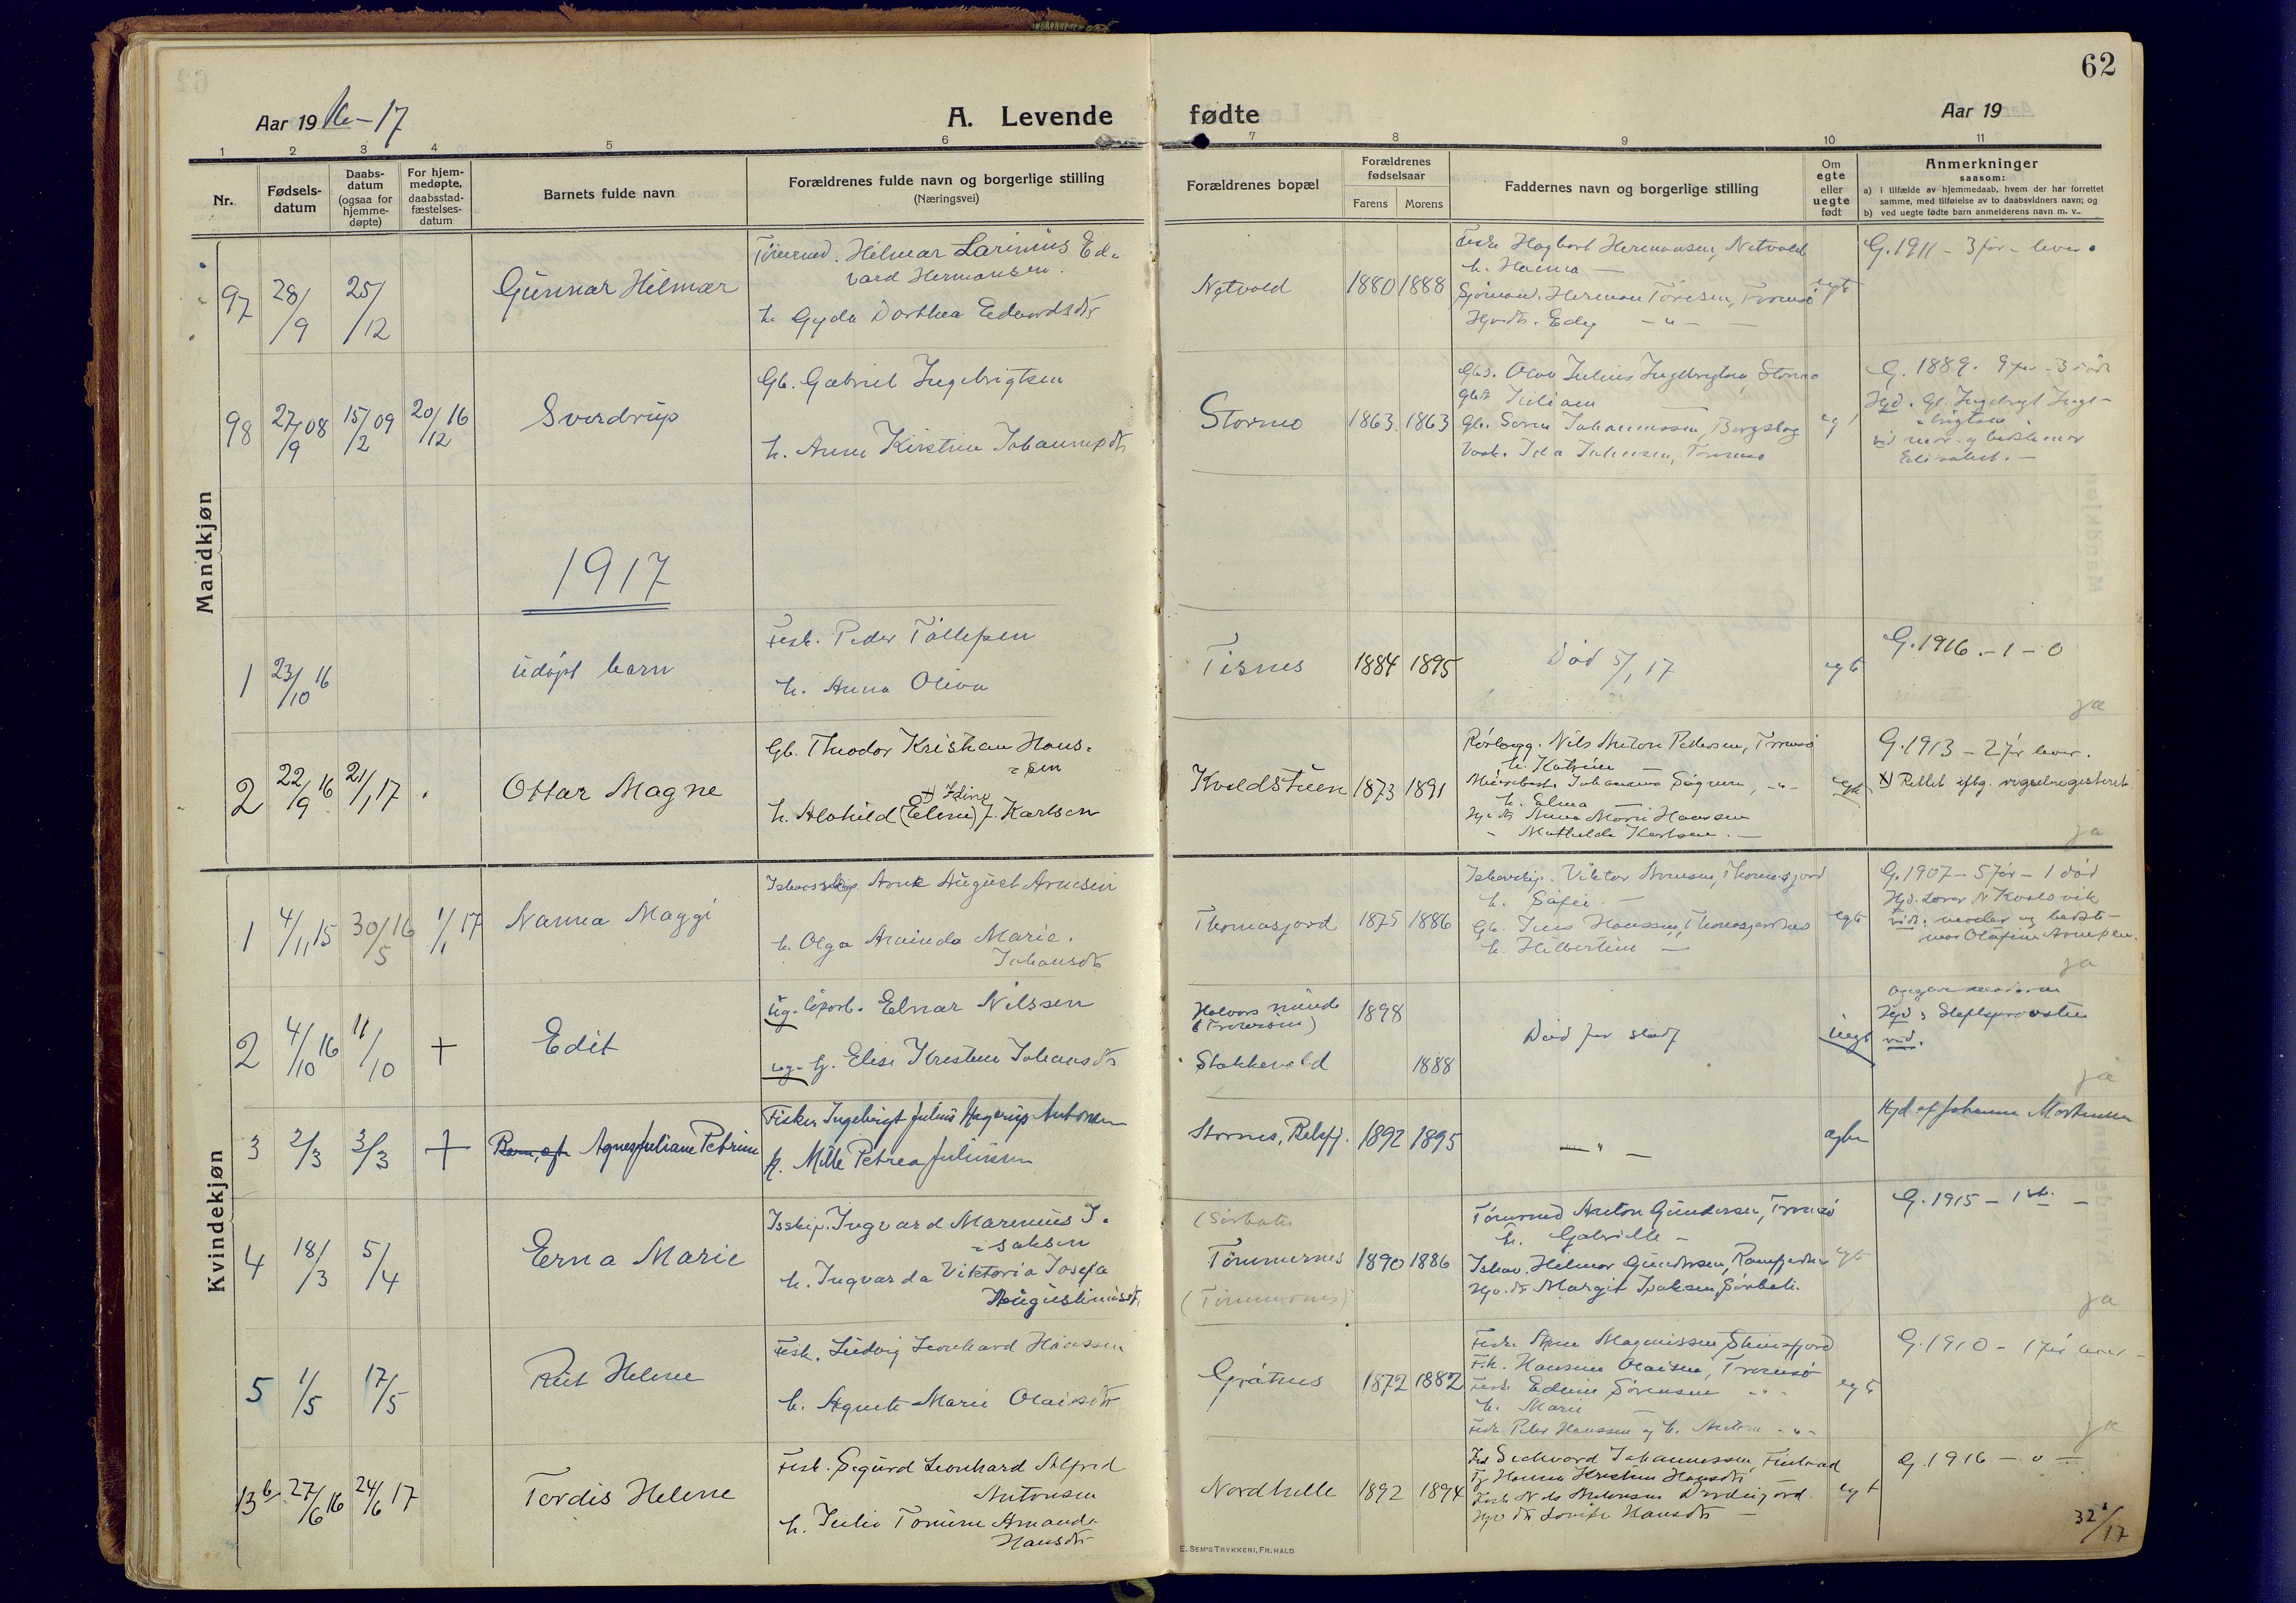 62
Aar 1916-17
A. Levende fødte
Aar 19
1 2 3 4 5 6 7 8 9 10 11
Nr.
Fødsels-
datum
Daabs-
datum
(ogsaa for
hjemme-
døpte)
For hjem-
medøpte,
daabsstad-
fæstelses-
datum
Barnets fulde navn
Forældrenes fulde navn og borgerlige stilling
(Næringsvei)
Forældrenes bopæl
Forældrenes
fødselsaar
Farens Morens
Faddernes navn og borgerlige stilling
Om
egte
eller
uegte
født
Anmerkninger
saasom:
a) i tilfælde av hjemmedaab, hvem der har forrettet
samme, med tilføielse av to daabsvidners navn; og
b) ved uegte fødte barn anmelderens navn m. v..
Mandkjøn
97 28/9 25/12 Gunnar Hilmar
Tømmerd. Hilmar Larinius Ed-
vard Hermansen.
h. Gyda Dorthea Edvardsdtr
Natvold 1880 1888
Fisk. Hagbart Hermansen, Natvold
h. Hanna —
Sjømand. Herman Tøresen, Tromsø
egte
G. 1911 - 3 før - lever.
98 27/9 08 15/2 09 20/12 16 Sverdrup
Gb. Gabriel Ingebrigtsen
h. Anne Kirstine Johannesdtr
Stormo 1863. 1863
Gbs. Olav Julius Ingebrigtsen, Stormo
Gb. Søren Johannessen, Bergslag
Vask. Ida Johnsen, Tromsø
G. 1889. 9 før - 3 døde
Hjd. Gb. Ingebrigt Inge-
brigtsen
vid mor og bedstemor
Elisabet. —
1917
1 23/10 16 udøpt barn
Fisk. Peder Tollefsen
h. Anna Oliva
Tisnes 1884 1895
Død 5/1 17
egte
G. 1916. - 1 - 0
ja
2 22/9 16 21/1 17 Ottar Magne
Gb. Theodor Kristian Hans-
sen
h. Alvhild (Eline) x) Idine J. Karlsen
Kvaldstuen 1873 1891
Rørlegg. Nils Anton Pettersen, Tromsø
h. Katrine
h. Elma
Hjv. dtr Anna Marie Hansen
" Mathilde Karlsen. —
G. 1913 - 2 før lever.
x) Rettet eftg. vigselregisteret.
ja
Kvindekjøn
1 4/11 15 30/5 16 1/1 17 Nanna Maggi
Ishavsskip. Arnt August Arnesen
h. Olga Aminda Marie.
Johansdtr
Thomasjord 1875 1886
Ishavskip. Viktor Arnesen, Thomasjord
h. Sofie. —
Gb. Jens Hanssen, Thomasjordnes
h. Hilbertine —
egte
G. 1907 - 5 før - 1 død
Hjd. Lærer N Kvalsvik
vid: moder og bedste-
mor Olafine Arnesen.
ja
2 4/10 16 11/10 + Edit
ug. Einar Nilssen
ug. tj. Elise Kristine Johansdtr
(Tromsøsund) 1898
Stakkevold 1888
Død før stadf
uegte
Opgave moderen
vid.
ja
3 2/3 3/3 + Barn, af Agnes Juliane Petrine
Fisker Ingebrigt Julius Hagerup Antonsen
h. Mille Petrea Juliussen
Stornes, Balsfj. 1892 1895
— " —
egte
Hjd af Johanna Mortensen
4 18/3 5/4 Erna Marie
Isskip. Ingvard Marenius I-
saksen
h. Ingvarda Viktoria Josefa
Augustinusdtr.
(Sørbotn
Tømmernes 1890 1886
(Tømmernes)
Tømmermd Anton Gundersen, Tromsø
h. Gabrielle —
Ishav. Hilmar Gundersen, Ramfjordnes
Hjv. dtr Margit Isaksen, Sørbotn.
egte
G. 1915 - 1 st. —
ja
5 1/5 17/5 Rut Helene
Fisk. Ludvig Leonhard Hanssen
h. Agnete Marie Olaisdtr
Gråtnes 1872 1882
F.k. Hansine Olaisen, Tromsø
Fisk. Edvin Sørensen " "
h. Marie
Fisk. Peter Hanssen og h. Antora - " -
egte
G. 1910 - 1 før lever -
ja
13 b 27/6 16 24/6 17 Tordis Helene
Fisk. Sigurd Leonhard Alfred
Antonsen
h. Julie Tomine Amanda
Hansdtr
Nordhella 1892 1894
Hjv dtr Lovise Hansdtr —
egte
G. 1916 - 0 —
32/17
E. SEM'S TRYKKERI, FR.HALD